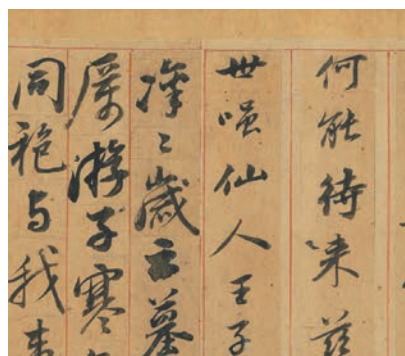 何能待来茲
世嗤仙人王子
凜々歲云暮
厲游子寒
同袍与我